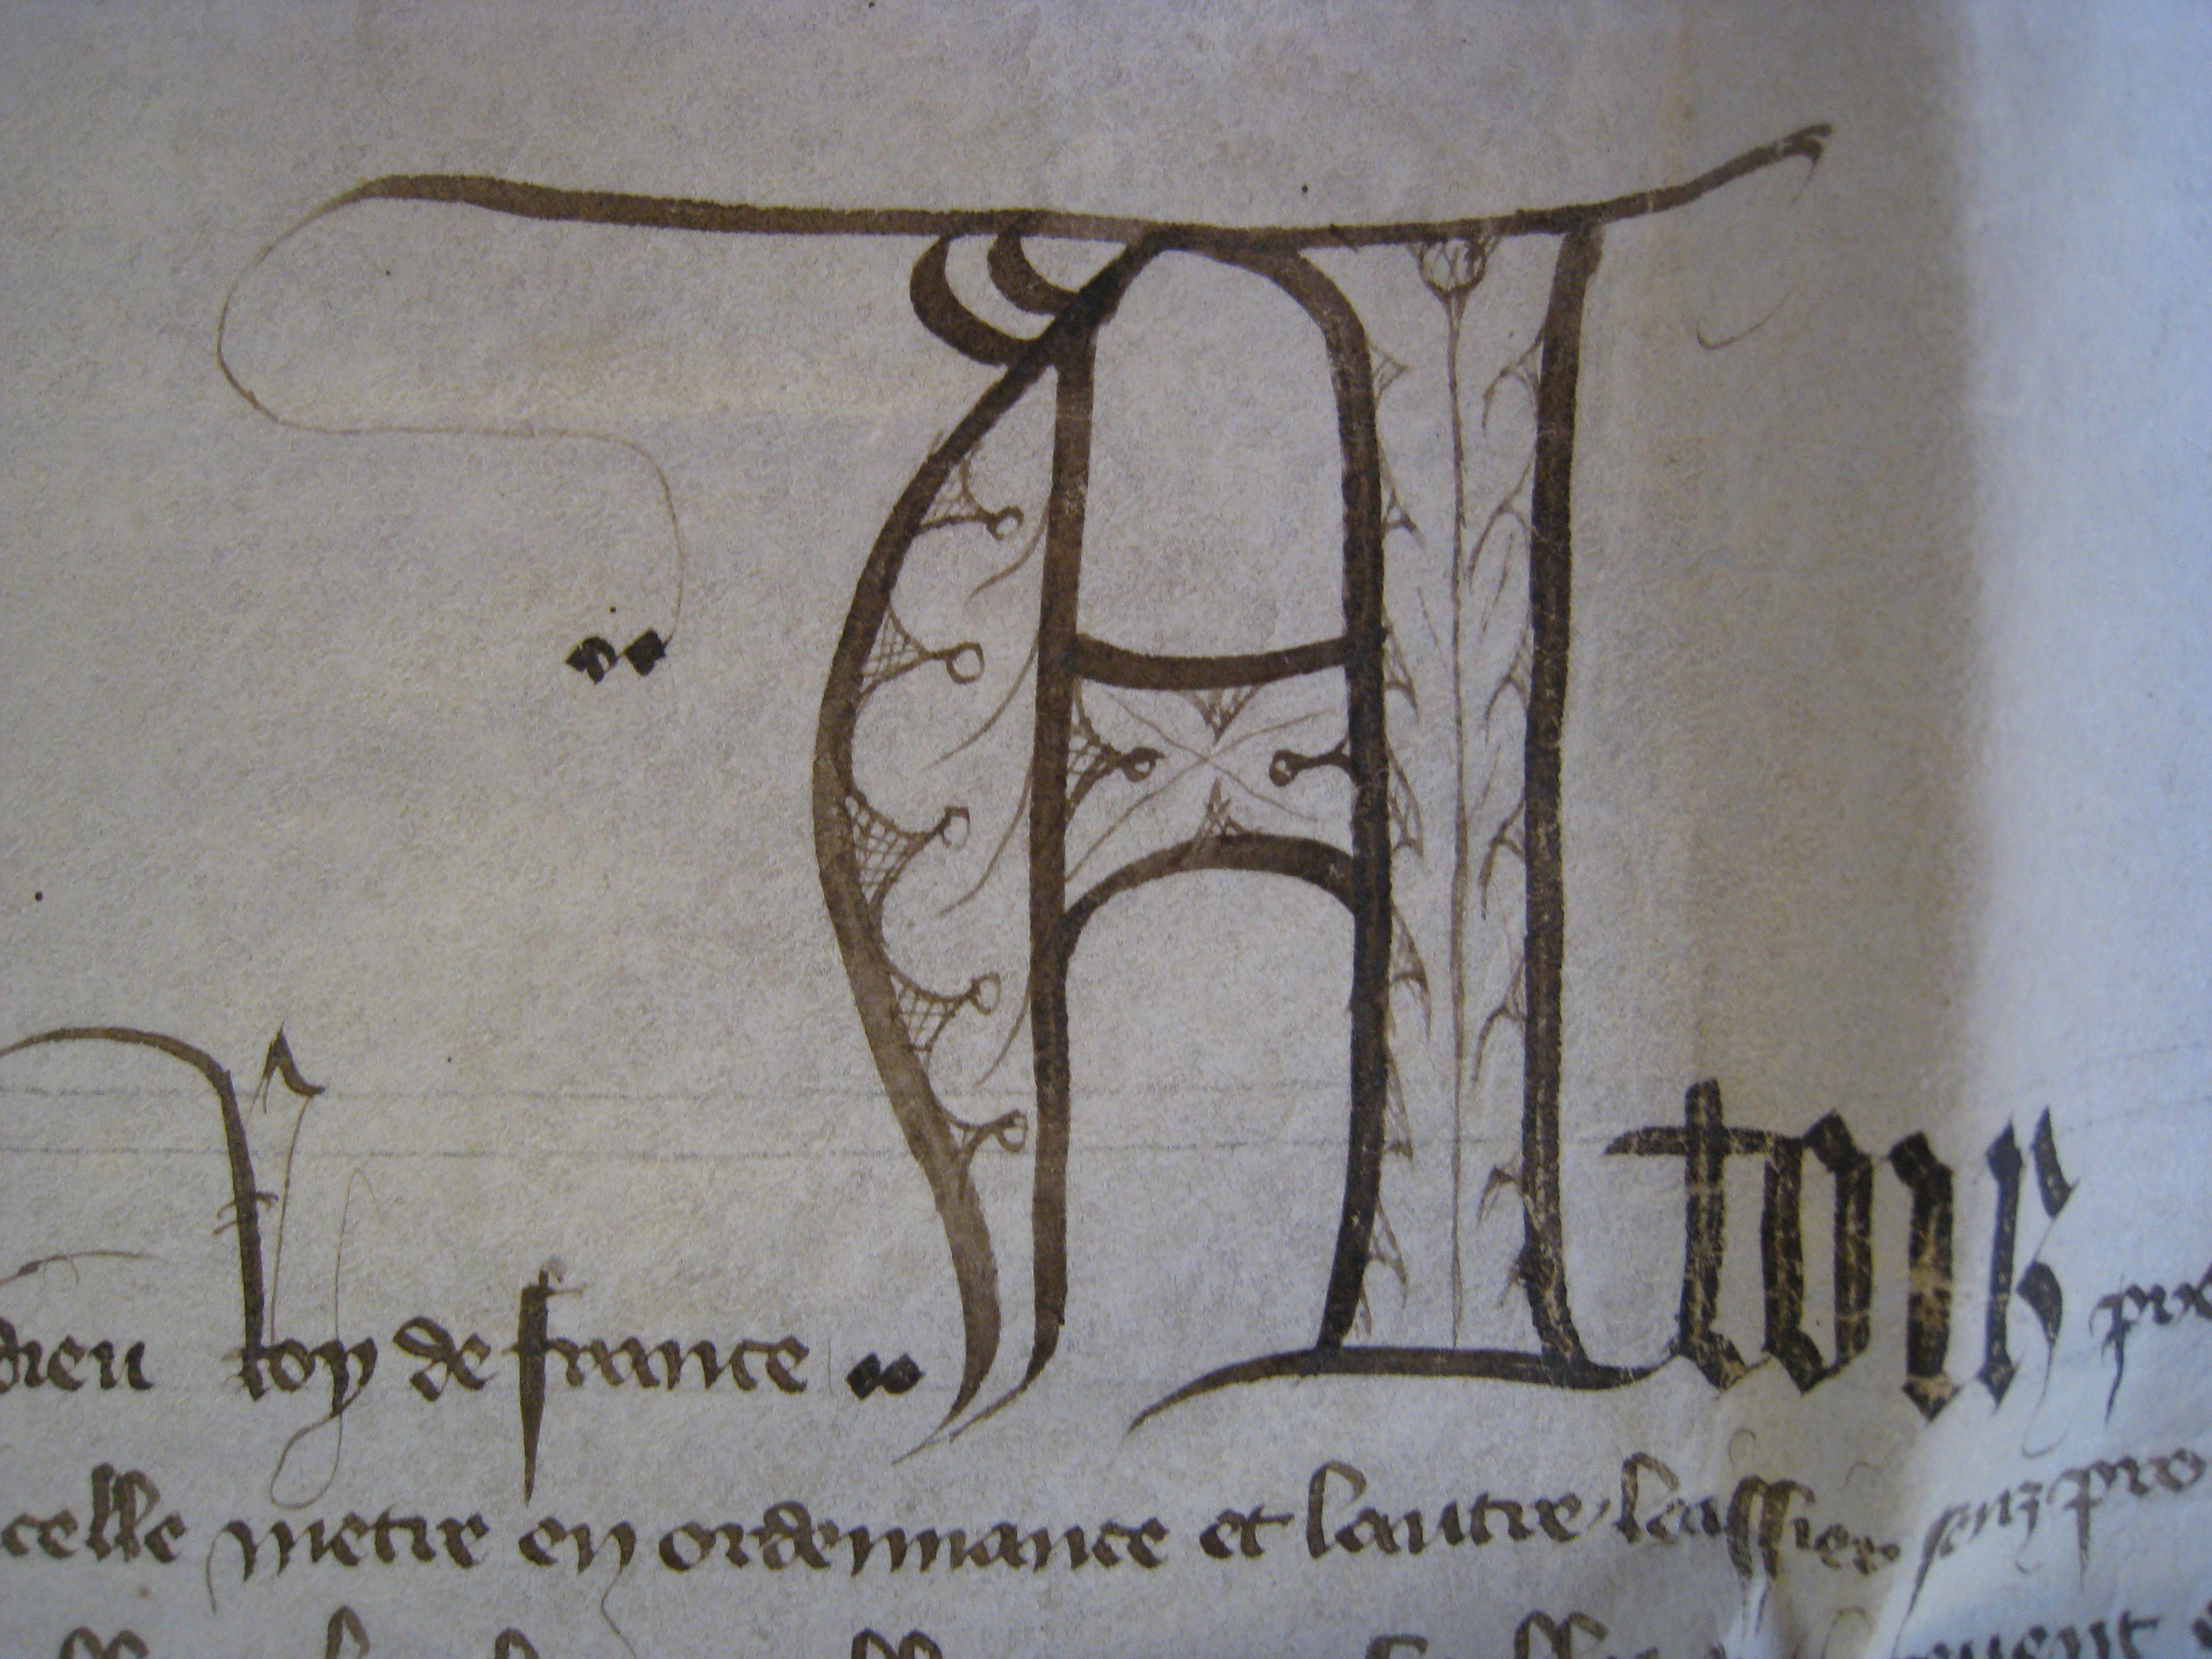 dieu Roy de france Atous
celle metre en ordennance et lautre laissier senz pro